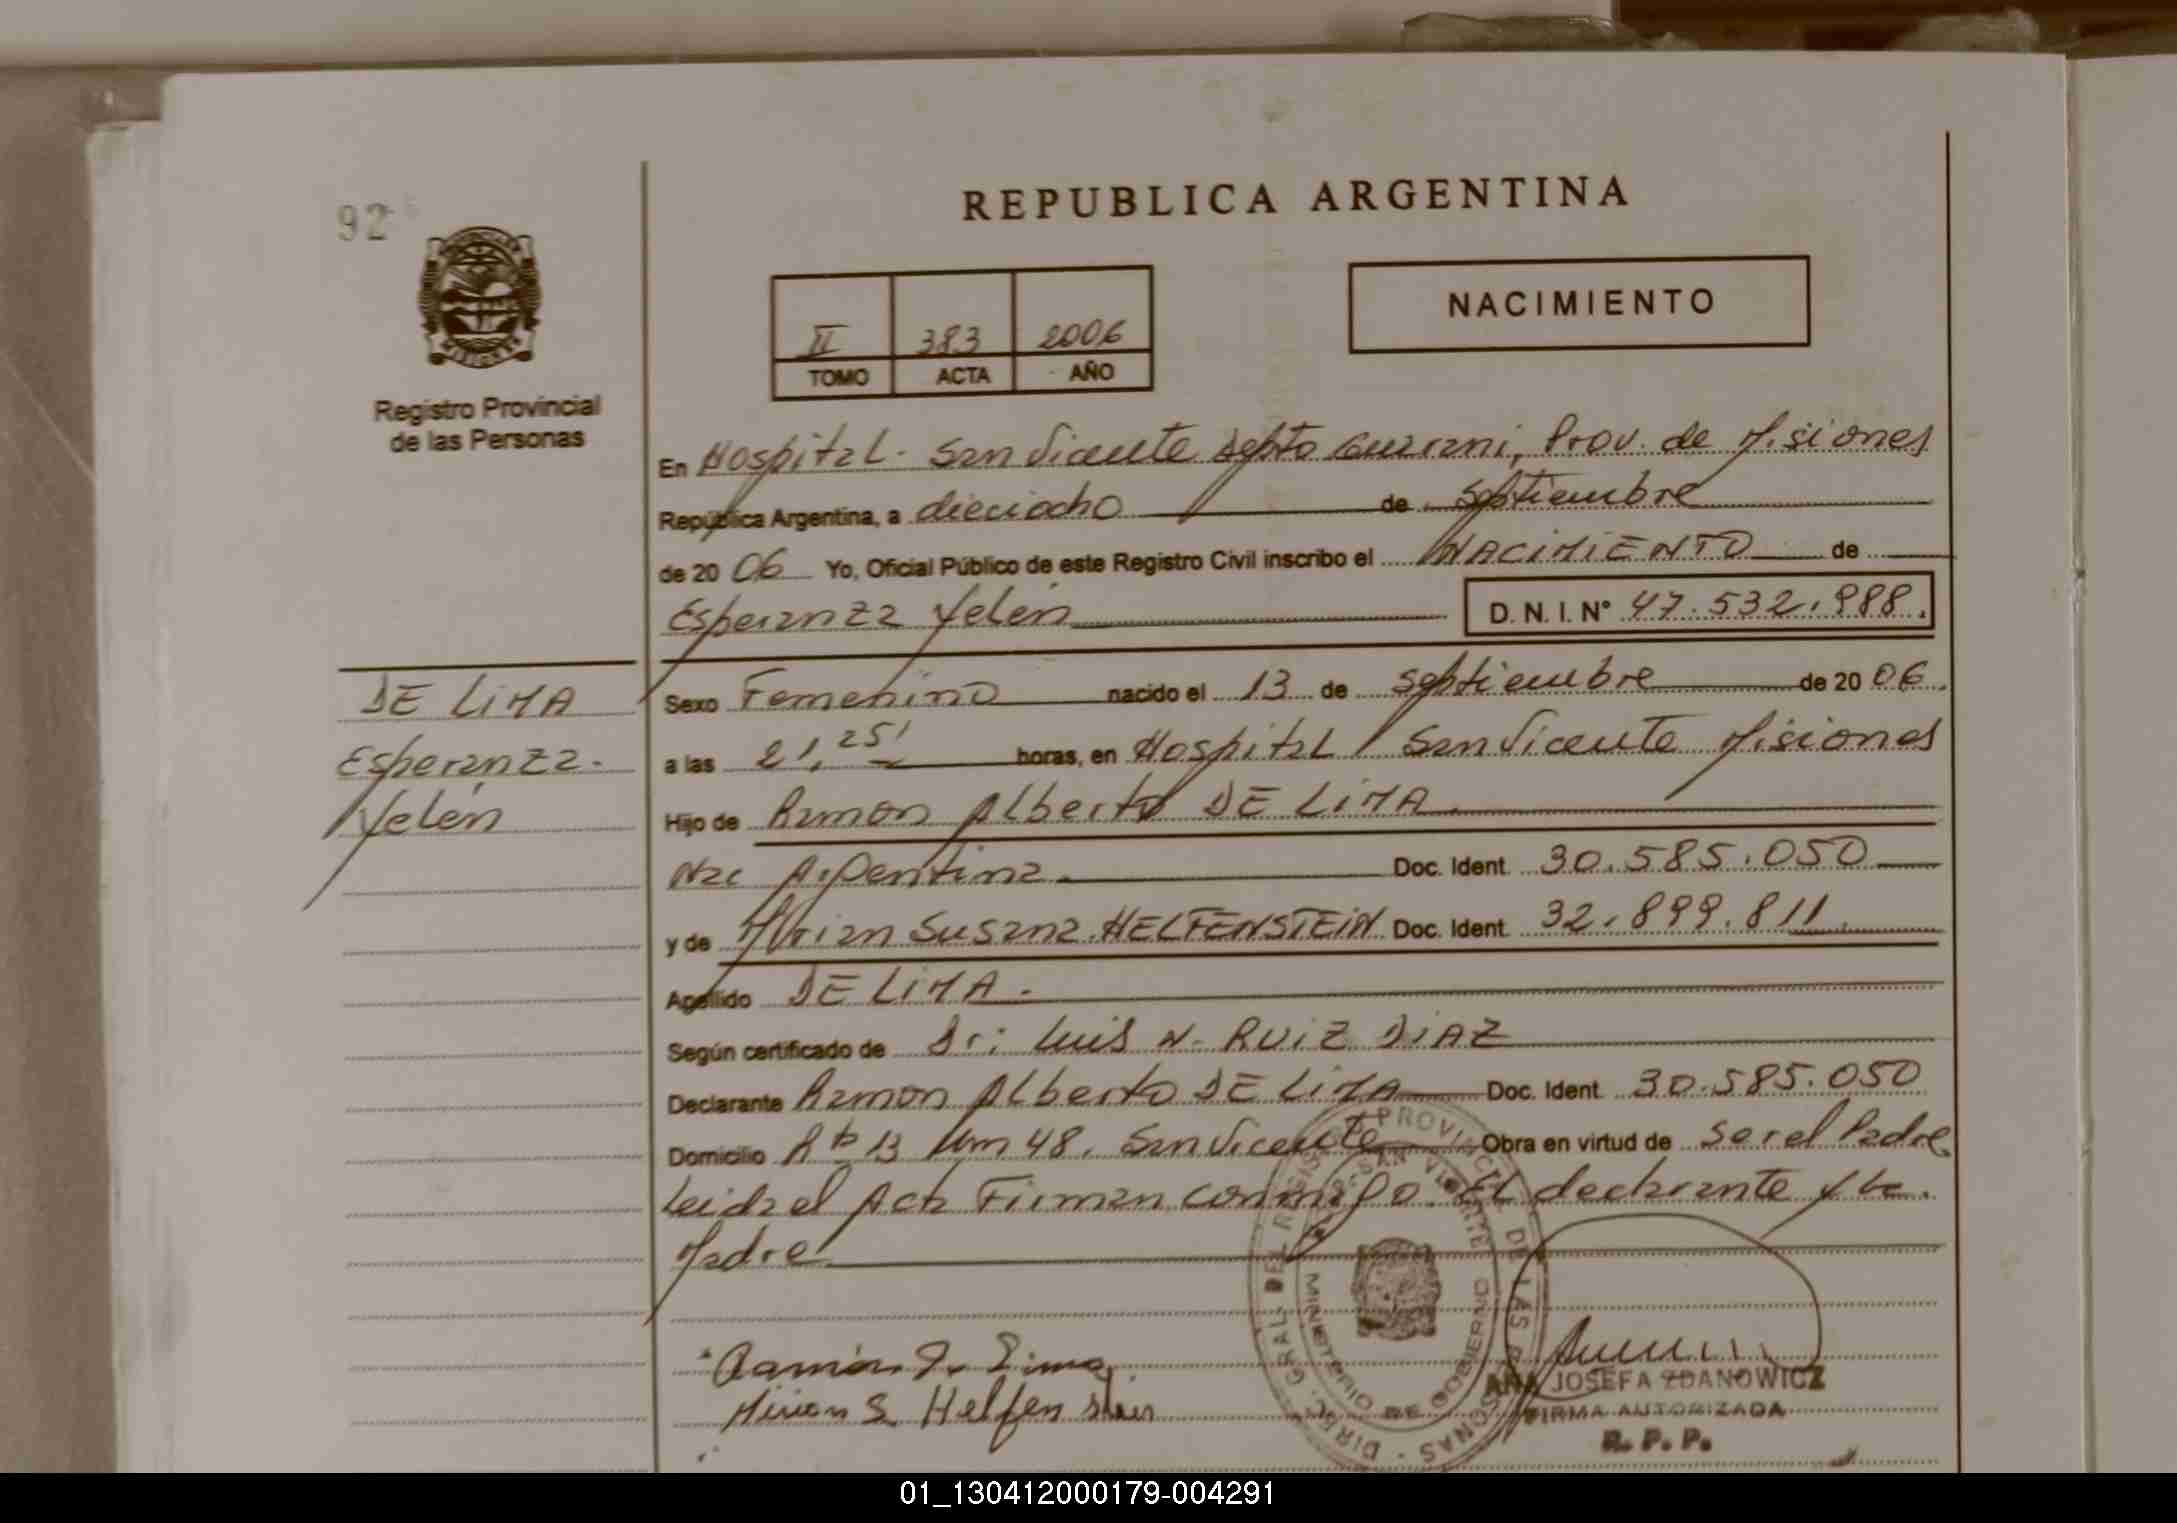 92
REPUBLICA ARGENTINA
NACIMIENTO
II 383 2006
TOMO ACTA AÑO
Registro Provincial
de las Personas
En Hospital. San Vicente Depto Guarani, Prov. de Misiones
República Argentina, a dieciocho de septiembre
de 2006 Yo, Oficial Público de este Registro Civil inscribo el NACIMIENTO de
Esperanza Yelén D. N. I. N° 47.532.988.
DE LIMA
Esperanza.
Yelén
Sexo Femenino nacido el 13 de septiembre de 2006.
a las 21,25' horas, en Hospital San Vicente Misiones
Hijo de Ramon Alberto DE LIMA.
Nac Argentina. Doc. Ident. 30.585.050
y de Mirian Susana. HELFENSTEIN Doc. Ident. 32.899.811.
Apellido DE LIMA.
Según certificado de Dr: Luis N. RUIZ DIAZ
Declarante Ramon Alberto DE LIMA Doc. Ident. 30.585.050
Domicilio Rta 13 Km 48. San Vicente Obra en virtud de ser el Padre
Leida el Acta Firman conmigo. El declarante y la.
Madre
Ramón D. Lima
Mirian S Helfenstein
DIREC. GRAL. DEL REGISTRO PROVINCIAL DE LAS PERSONAS
SAN VICENTE
MINISTERIO DE GOBIERNO
ANA JOSEFA ZDANOWICZ
FIRMA AUTORIZADA
R. P. P.
01_130412000179-004291